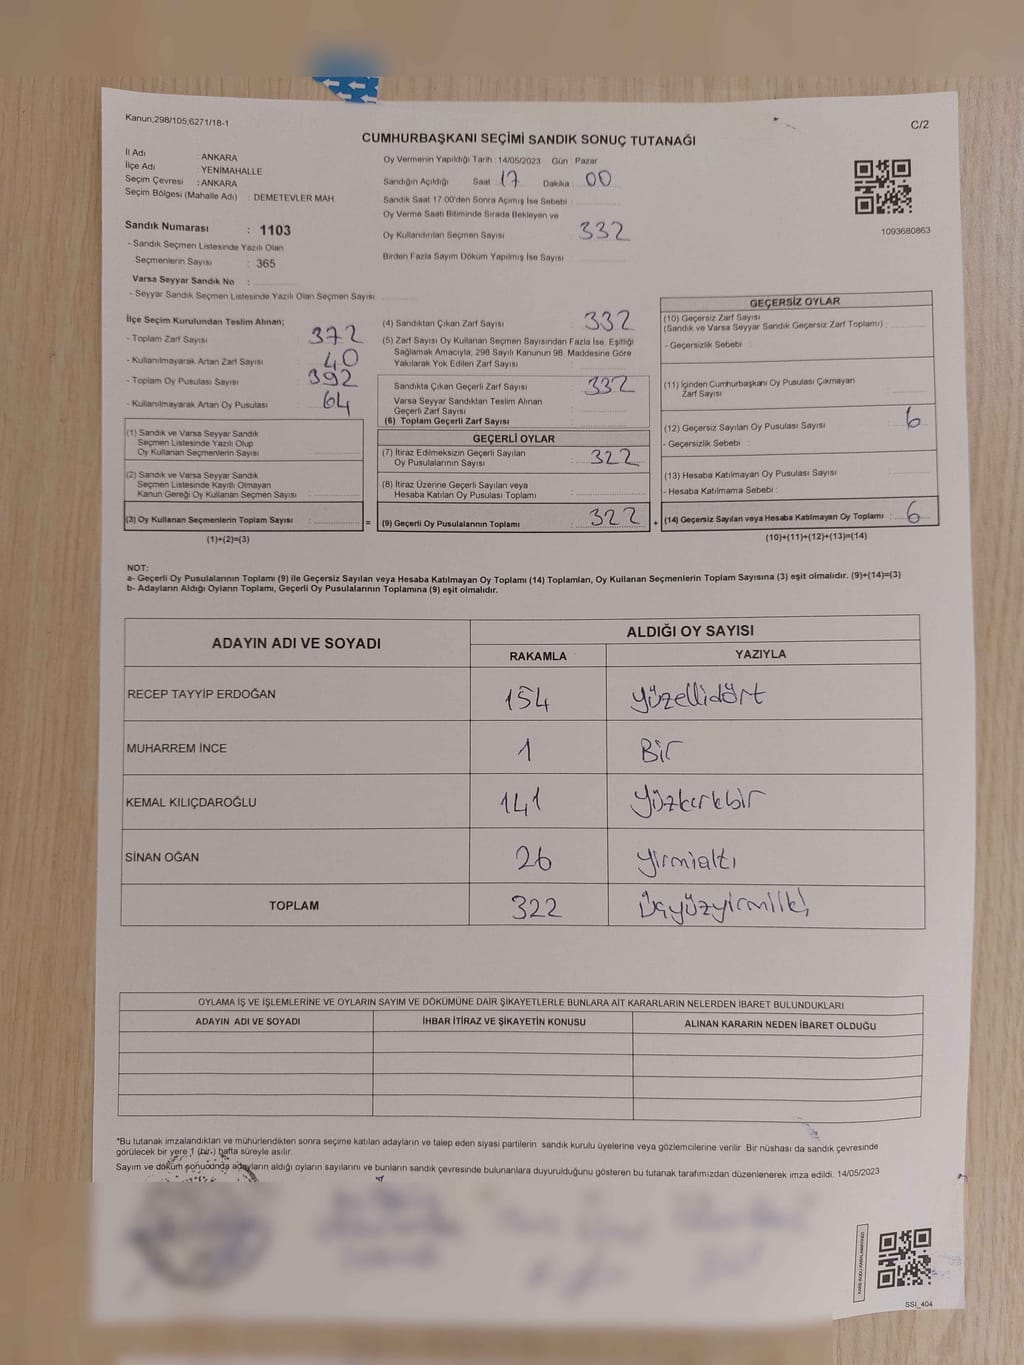 Kanun,298/105,6271/18-1
C/2
CUMHURBAŞKANI SEÇİMİ SANDIK SONUÇ TUTANAĞI
İl Adı : ANKARA
İlçe Adı : YENİMAHALLE
Seçim Çevresi : ANKARA
Seçim Bölgesi (Mahalle Adı) : DEMETEVLER MAH.
Sandık Numarası : 1103
- Sandık Seçmen Listesinde Yazılı Olan
Seçmenlerin Sayısı : 365
Varsa Seyyar Sandık No :
- Seyyar Sandık Seçmen Listesinde Yazılı Olan Seçmen Sayısı
Oy Vermenin Yapıldığı Tarih 14/05/2023 Gün Pazar
Sandığın Açıldığı Saat 17 Dakika 00
Sandık Saat 17.00'den Sonra Açılmış İse Sebebi :
Oy Verme Saati Bitiminde Sırada Bekleyen ve
Oy Kullandırılan Seçmen Sayısı : 332
Birden Fazla Sayım Döküm Yapılmış İse Sayısı :
1093680863
İlçe Seçim Kurulundan Teslim Alınan;
- Toplam Zarf Sayısı : 372
- Kullanılmayarak Artan Zarf Sayısı : 40
- Toplam Oy Pusulası Sayısı : 392
- Kullanılmayarak Artan Oy Pusulası : 64
(1) Sandık ve Varsa Seyyar Sandık
Seçmen Listesinde Yazılı Olup
Oy Kullanan Seçmenlerin Sayısı :
(2) Sandık ve Varsa Seyyar Sandık
Seçmen Listesinde Kayıtlı Olmayan
Kanun Gereği Oy Kullanan Seçmen Sayısı :
(3) Oy Kullanan Seçmenlerin Toplam Sayısı :
(1)+(2)=(3)
(4) Sandıktan Çıkan Zarf Sayısı : 332
(5) Zarf Sayısı Oy Kullanan Seçmen Sayısından Fazla İse, Eşitliği
Sağlamak Amacıyla, 298 Sayılı Kanunun 98. Maddesine Göre
Yakılarak Yok Edilen Zarf Sayısı :
Sandıkta Çıkan Geçerli Zarf Sayısı : 332
Varsa Seyyar Sandıktan Teslim Alınan
Geçerli Zarf Sayısı :
(6) Toplam Geçerli Zarf Sayısı :
GEÇERLİ OYLAR
(7) İtiraz Edilmeksizin Geçerli Sayılan
Oy Pusulalarının Sayısı : 322
(8) İtiraz Üzerine Geçerli Sayılan veya
Hesaba Katılan Oy Pusulası Toplamı :
= (9) Geçerli Oy Pusulalarının Toplamı : 322 +
GEÇERSİZ OYLAR
(10) Geçersiz Zarf Sayısı
(Sandık ve Varsa Seyyar Sandık Geçersiz Zarf Toplamı) :
- Geçersizlik Sebebi :
(11) İçinden Cumhurbaşkanı Oy Pusulası Çıkmayan
Zarf Sayısı :
(12) Geçersiz Sayılan Oy Pusulası Sayısı : 6
- Geçersizlik Sebebi :
(13) Hesaba Katılmayan Oy Pusulası Sayısı :
- Hesaba Katılmama Sebebi :
(14) Geçersiz Sayılan veya Hesaba Katılmayan Oy Toplamı : 6
(10)+(11)+(12)+(13)=(14)
NOT:
a- Geçerli Oy Pusulalarının Toplamı (9) ile Geçersiz Sayılan veya Hesaba Katılmayan Oy Toplamı (14) Toplamları, Oy Kullanan Seçmenlerin Toplam Sayısına (3) eşit olmalıdır. (9)+(14)=(3)
b- Adayların Aldığı Oyların Toplamı, Geçerli Oy Pusulalarının Toplamına (9) eşit olmalıdır.
ADAYIN ADI VE SOYADI ALDIĞI OY SAYISI
RAKAMLA YAZIYLA
RECEP TAYYİP ERDOĞAN 154 yüzellidört
MUHARREM İNCE 1 Bir
KEMAL KILIÇDAROĞLU 141 yüzkırkbir
SİNAN OĞAN 26 yirmialtı
TOPLAM 322 Üçyüzyirmiiki
OYLAMA İŞ VE İŞLEMLERİNE VE OYLARIN SAYIM VE DÖKÜMÜNE DAİR ŞİKAYETLERLE BUNLARA AİT KARARLARIN NELERDEN İBARET BULUNDUKLARI
ADAYIN ADI VE SOYADI İHBAR İTİRAZ VE ŞİKAYETİN KONUSU ALINAN KARARIN NEDEN İBARET OLDUĞU
*Bu tutanak imzalandıktan ve mühürlendikten sonra seçime katılan adayların ve talep eden siyasi partilerin sandık kurulu üyelerine veya gözlemcilerine verilir. Bir nüshası da sandık çevresinde
görülecek bir yere 1 (bir) hafta süreyle asılır.
Sayım ve döküm sonucunda adayların aldığı oyların sayılarını ve bunların sandık çevresinde bulunanlara duyurulduğunu gösteren bu tutanak tarafımızdan düzenlenerek imza edildi. 14/05/2023
SSI_404